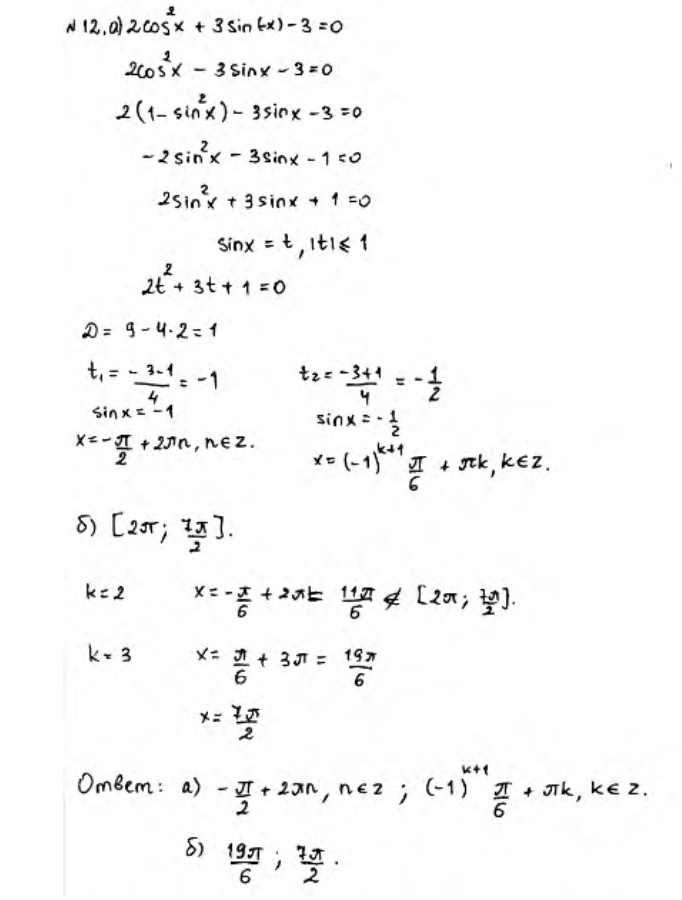 N 12. а) 2cos²x + 3sin(-x) - 3 = 0
2cos²x - 3sinx - 3 = 0
2(1 - sin²x) - 3sinx - 3 = 0
-2sin²x - 3sinx - 1 = 0
2sin²x + 3sinx + 1 = 0
sinx = t, |t| ⩽ 1
2t² + 3t + 1 = 0
D = 9 - 4·2 = 1
t₁ = (-3-1)/4 = -1 t₂ = (-3+1)/4 = -1/2
sinx = -1 sinx = -1/2
x = -π/2 + 2πn, n∈Z. x = (-1)^(k+1) π/6 + πk, k∈Z.
б) [2π; 7π/2].
k = 2 x = -π/6 + 2π = 11π/6 ∉ [2π; 7π/2].
k = 3 x = π/6 + 3π = 19π/6
x = 7π/2
Ответ: а) -π/2 + 2πn, n∈Z ; (-1)^(k+1) π/6 + πk, k∈Z.
б) 19π/6 ; 7π/2.